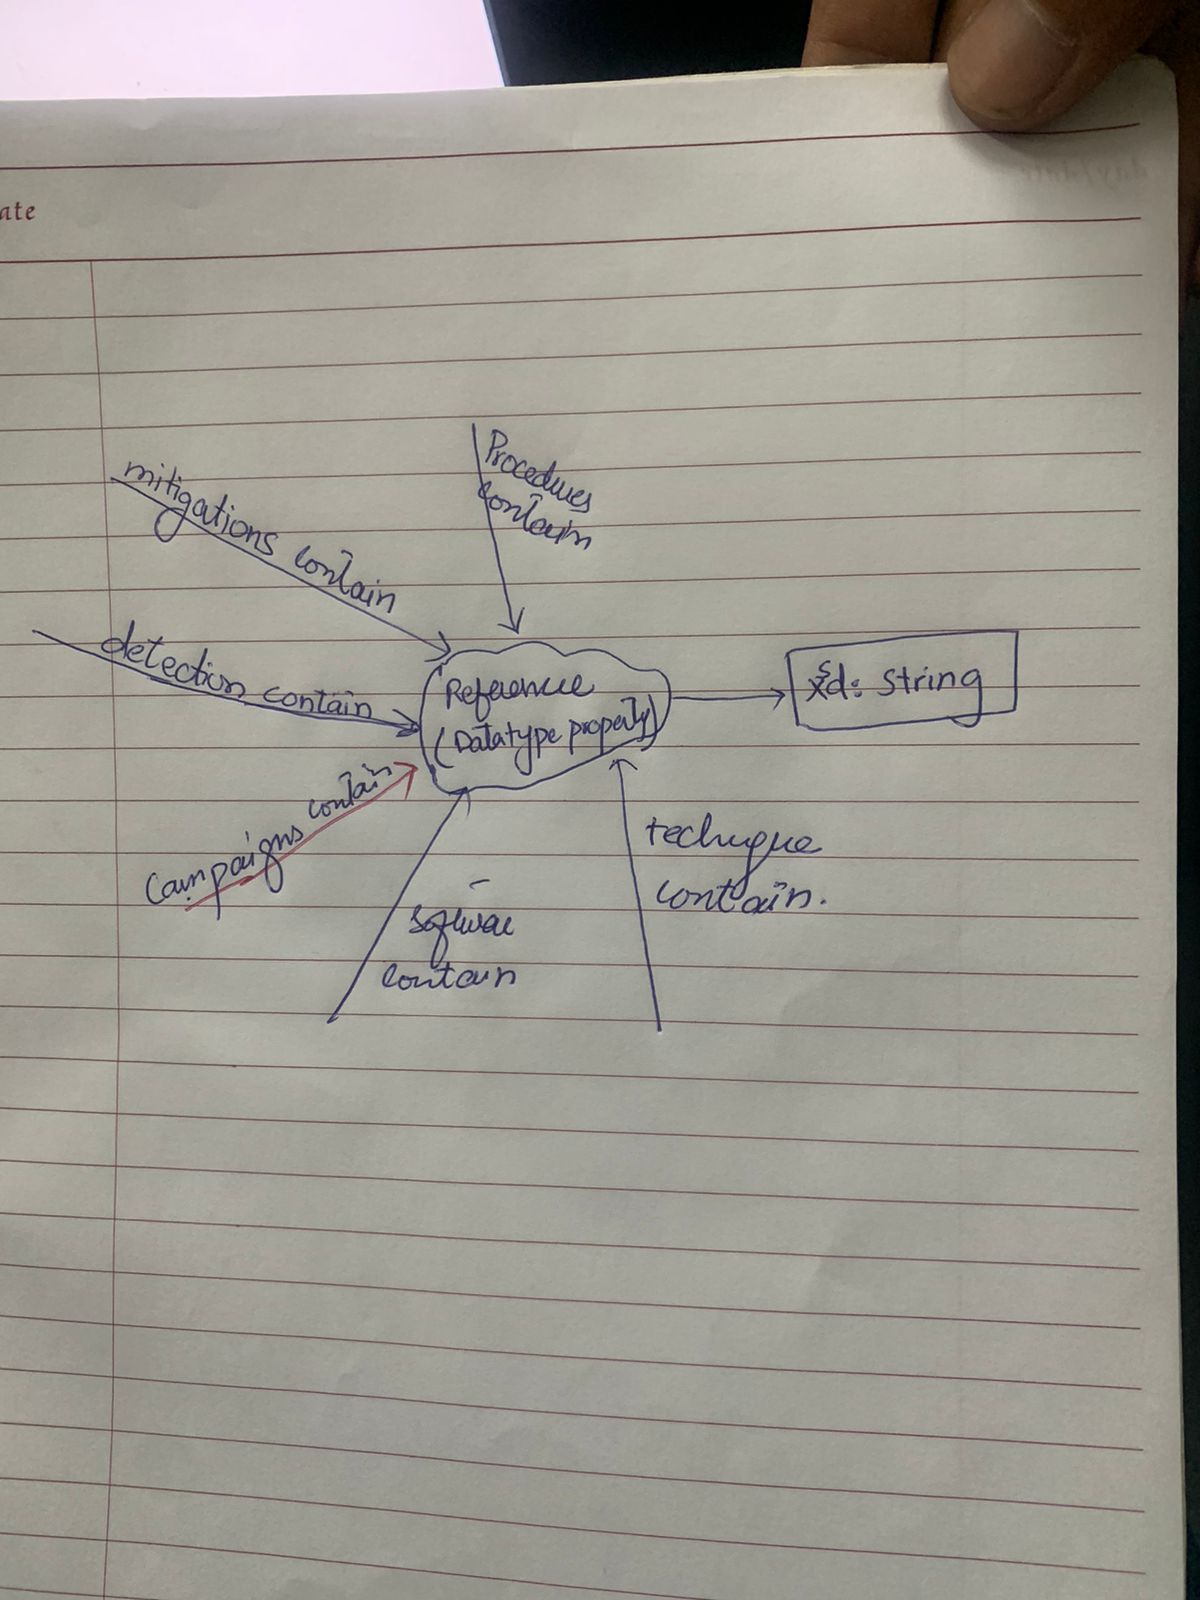 ate
Procedures
contain
mitigations contain
detection contain
Reference
(Datatype property)
xsd: String
Campaigns contain
technique
contain.
Software
contain